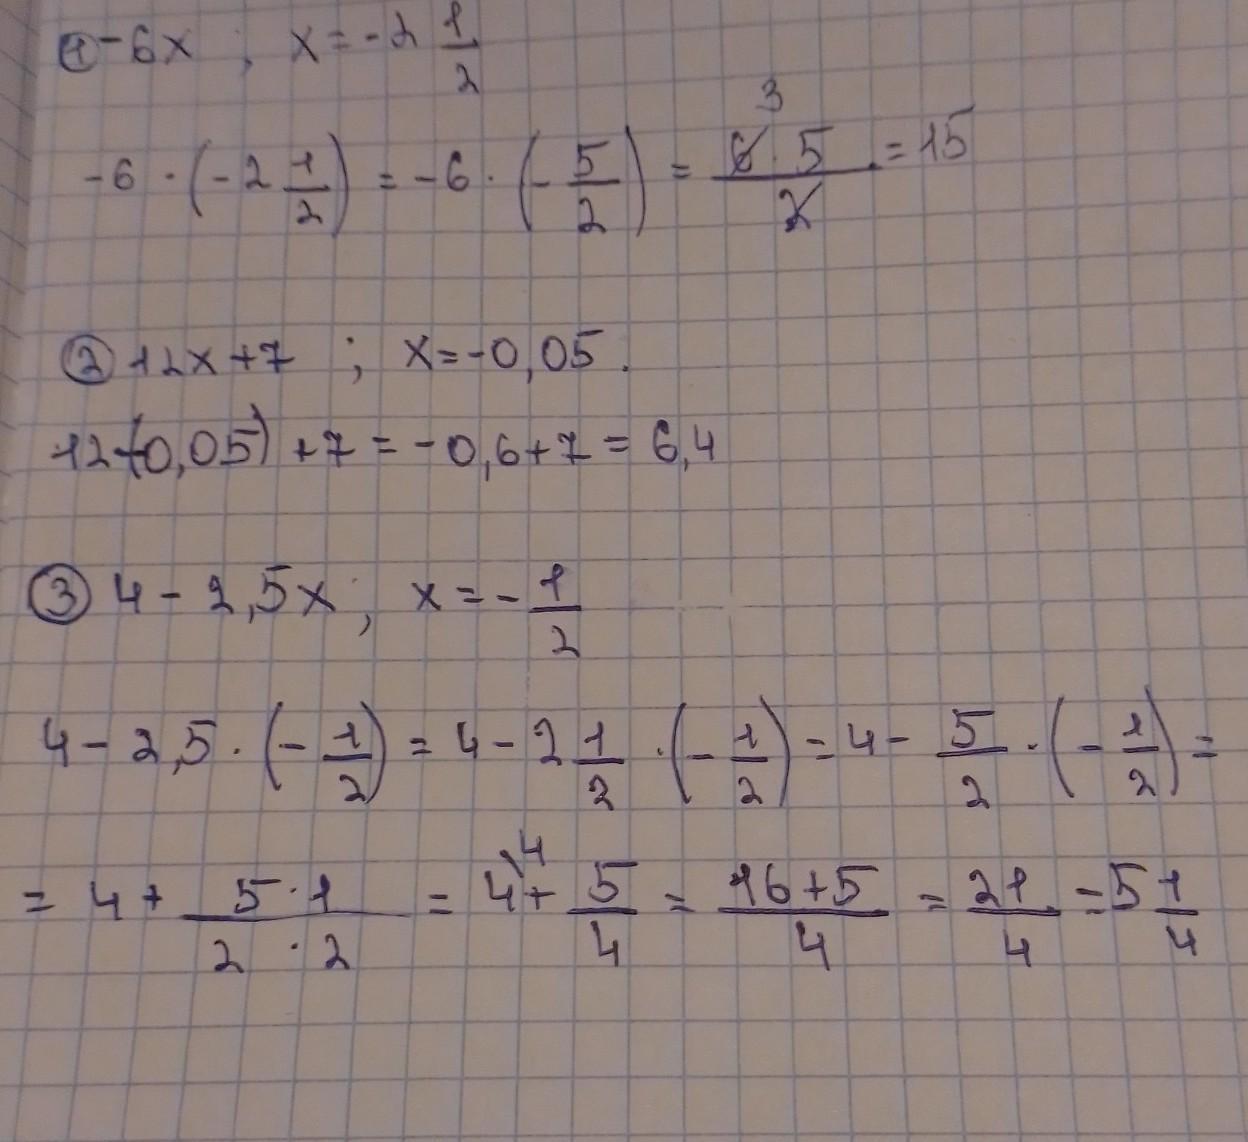 ① -6x ; x = -2 1/2
-6 · (-2 1/2) = -6 · (- 5/2) = 6 · 5 / 2 = 15
3
② 12x+7 ; x = -0,05.
12·(-0,05) + 7 = -0,6+7 = 6,4
③ 4 - 2,5x ; x = - 1/2
4 - 2,5 · (- 1/2) = 4 - 2 1/2 · (- 1/2) = 4 - 5/2 · (- 1/2) =
= 4 + 5·1 / 2·2 = 4\4 + 5/4 = 16+5 / 4 = 21/4 = 5 1/4